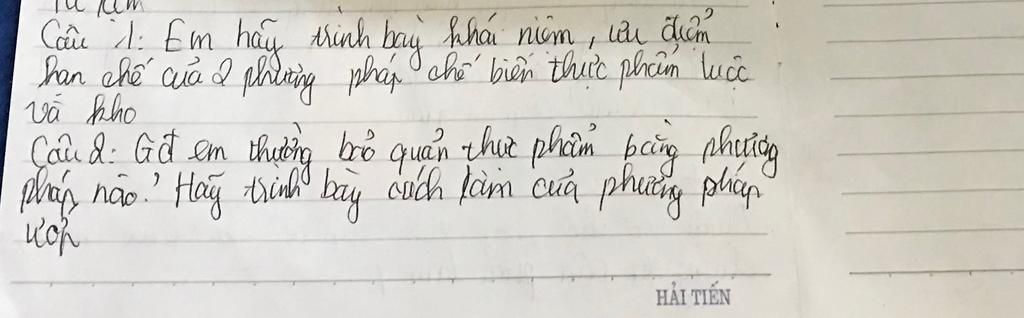 Tự luận
Câu 1: Em hãy trình bày khái niệm, ưu điểm
hạn chế của 2 phương pháp chế biến thực phẩm luộc
và kho
Câu 2: Gđ em thường bảo quản thực phẩm bằng phương
pháp nào? Hãy trình bày cách làm của phương pháp
ướp
HẢI TIẾN